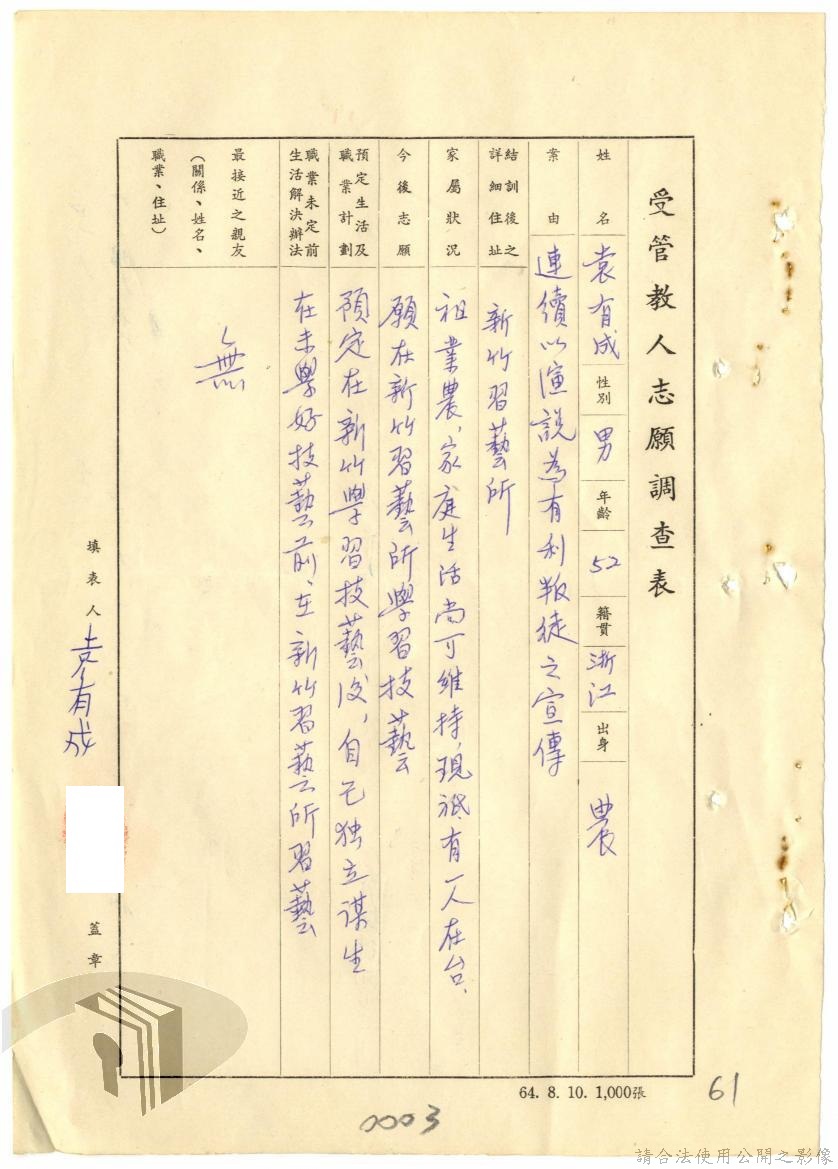 受管教人志願調查表
姓名 袁有成 性別 男 年齡 52 籍貫 浙江 出身 農
案由 連續以演說為有利叛徒之宣傳
結訓後之詳細住址 新竹習藝所
家屬狀況 祖業農、家庭生活尚可維持、現祗有一人在台、
今後志願 願在新竹習藝所學習技藝
預定生活及職業計劃 預定在新竹學習技藝後,自己独立謀生
職業未定前生活解決辦法 在未學好技藝前、在新竹習藝所習藝
最接近之親友(關係、姓名、職業、住址) 無
填表人 袁有成 蓋章
64. 8. 10. 1,000張
61
0003
請合法使用公開之影像